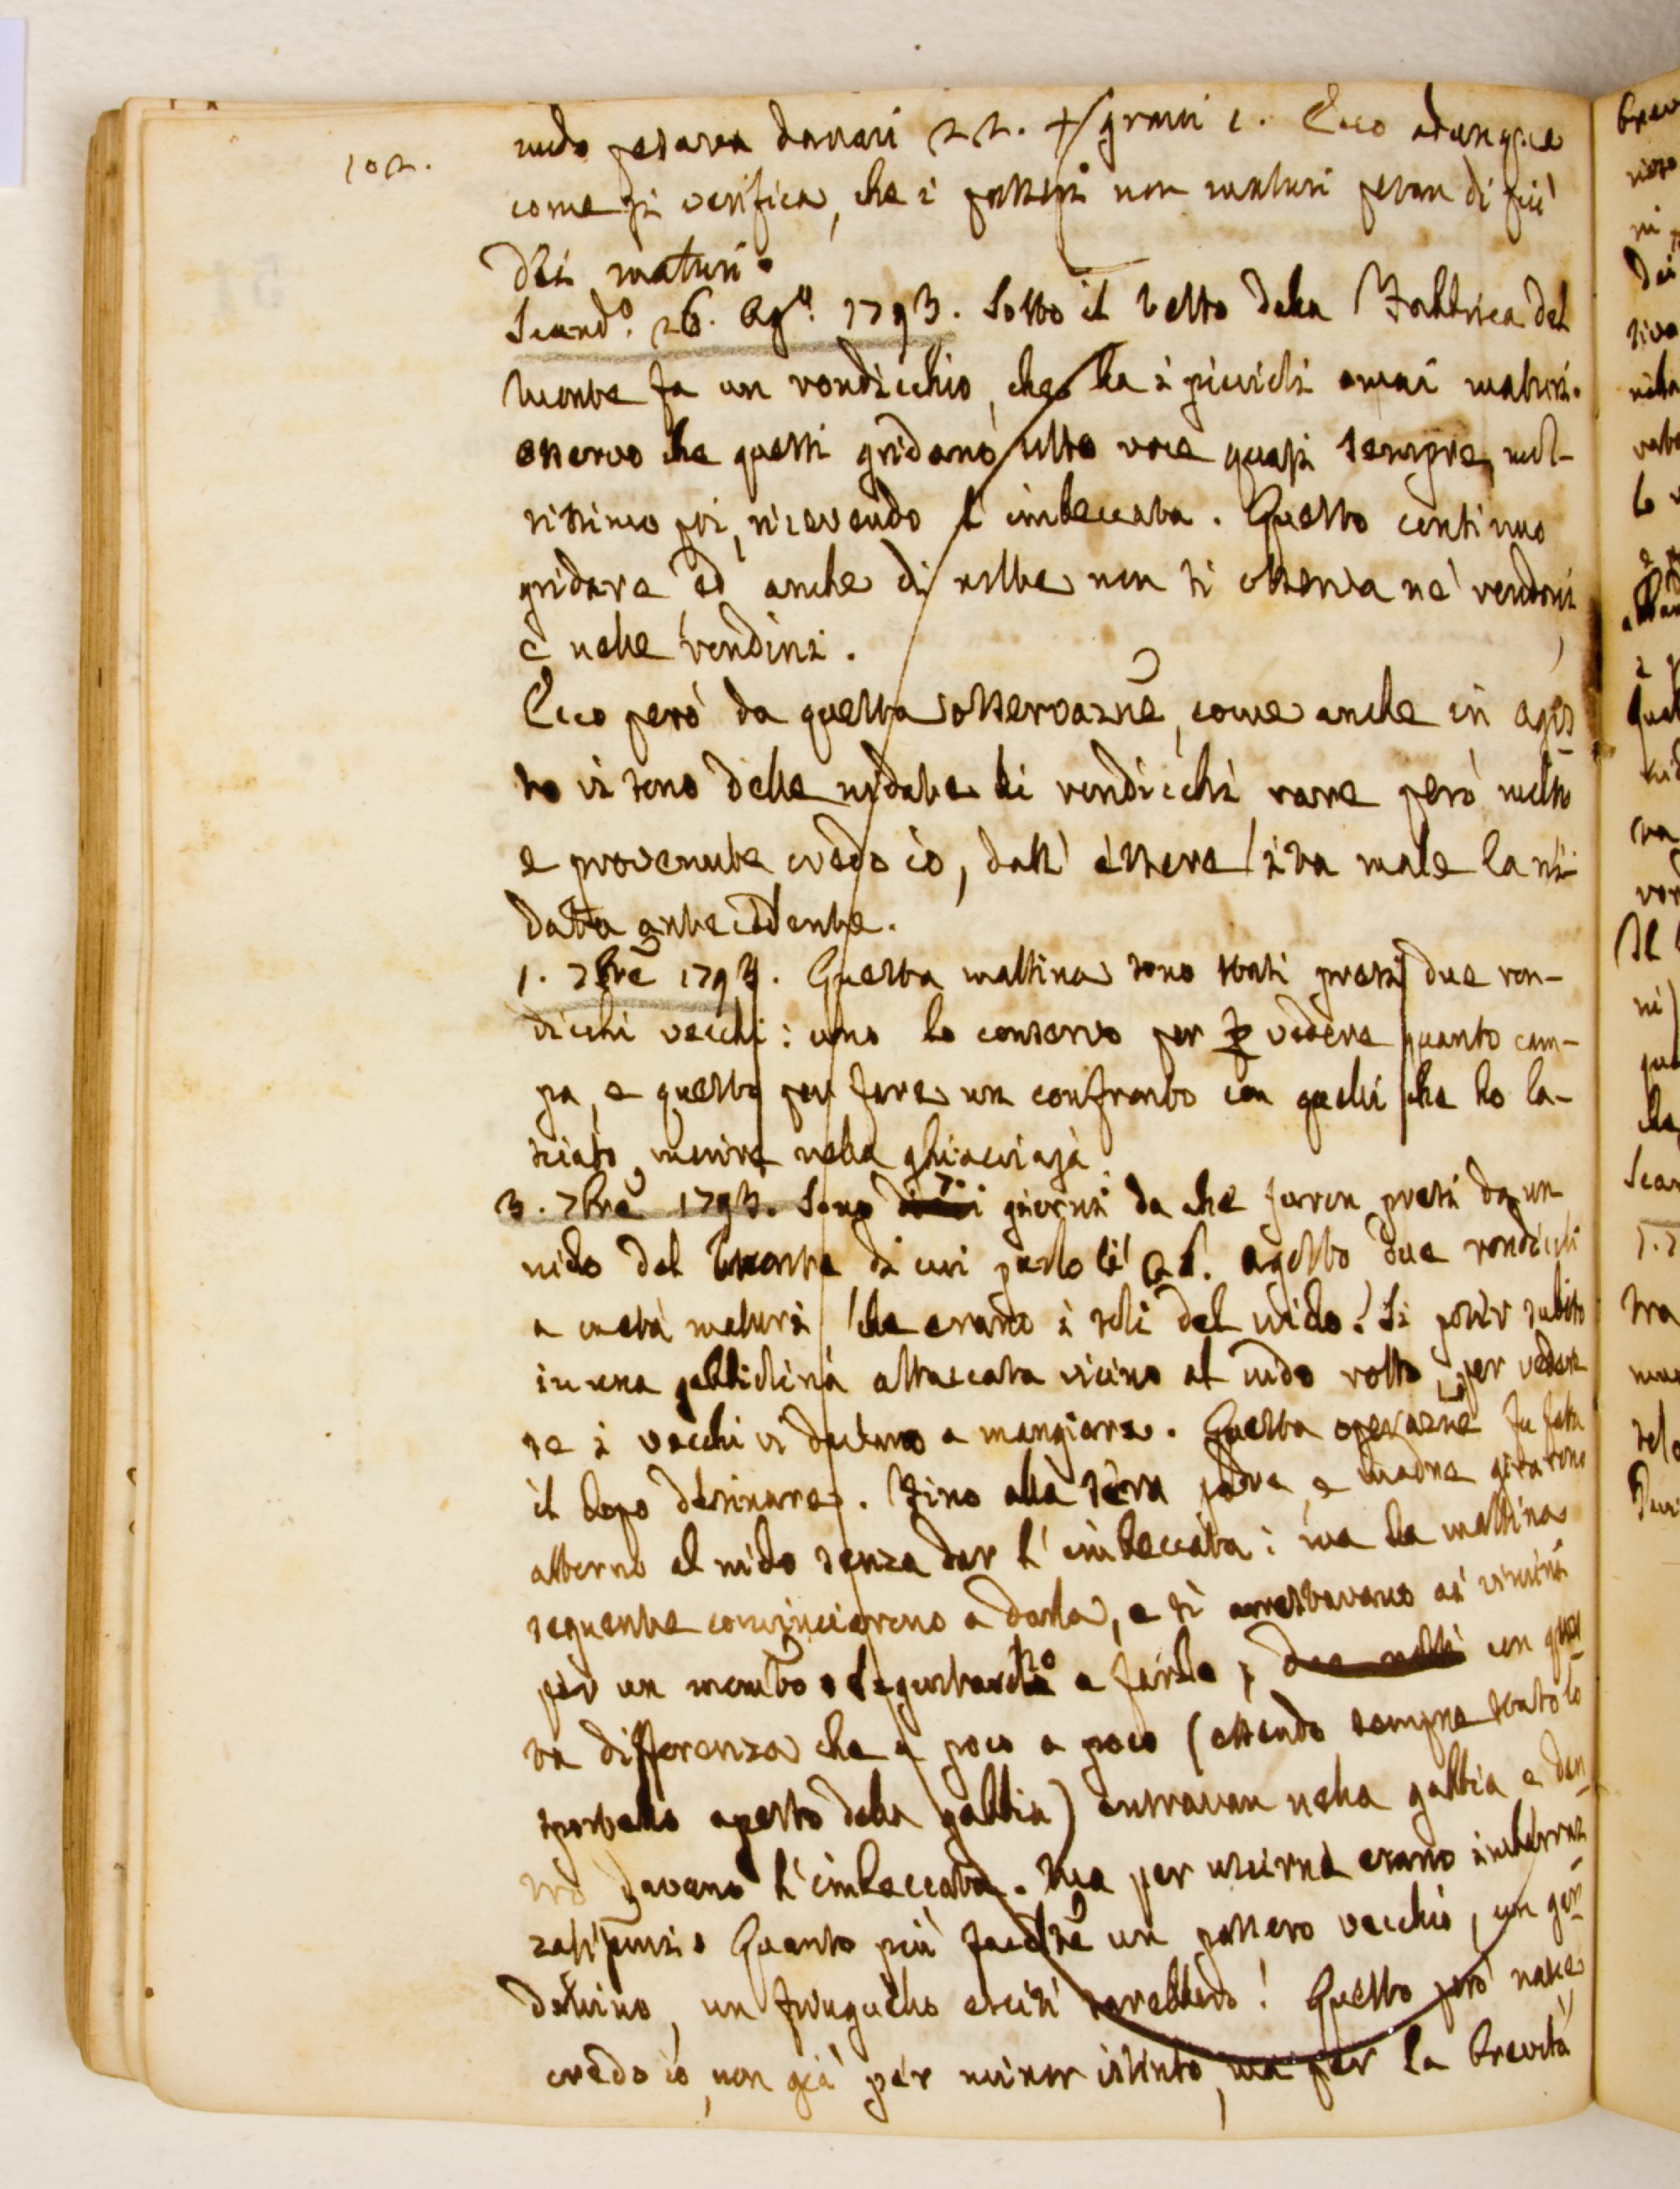 102.
nudo pesava danari 22. + grani 1. Ecco adunque
come si verifica, che i passeri non maturi pesan di più
dei maturi.
Scand.º 26. Ag.º 1793. Sotto il tetto della Fabbrica del
Monte fa un rondicchio, che ha i piccioli omai maturi.
Osservo che questi gridano alto voce quasi sempre, mol-
tissimo poi, ricevendo l'imbeccata. Questo continuo
gridare ed anche di notte non si osserva ne' rondoni
e nelle rondini.
Ecco però da questa osservazne, come anche in agos
to vi sono delle nidate di rondicchi, rare però molto
e provenute credo io, dall' essere ita male la ni-
data antecedente.
1. 7bre 1793. Questa mattina sono stati presi due ron-
dicchi vecchi: uno lo conservo per vedere quanto cam-
pa, e questo per fare un confronto con quelli che ho la-
sciato morire nella ghiacciaja.
3. 7bre 1793. Sono 7. giorni da che furon presi da un
nido del Monte di cui parlo li 26. agosto due rondicchi
a metà maturi che erano i soli del nido. Si poser subito
in una gabbiolina attaccata vicino al nido rotto, per vedere
se i vecchi vi davano a mangiare. Questa operazne fu fatta
il dopo desinare. Fino alla sera padre, e madre girarono
attorno al nido senza dar l'imbeccata: ma la mattina
seguente cominciarono a darla, e si arrestavano ai vicini
per un momto e seguitarono a farlo, con ques
ta differenza che a poco a poco (essendo sempre stato lo
sportello aperto della gabbia) entravan nella gabbia e den
tro davano l'imbeccata. Ma per uscirne erano imbarraz
zatissimi. Quanto più facilmte un passero vecchio, un gar
dellino, un fringuello esciti sarebbero! Questo però nasce
credo io, non già per minor istinto, ma per la brevità